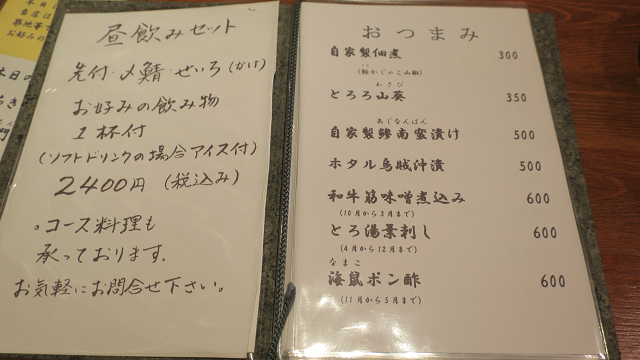 昼飲みセット
先付・〆鯖・せいろ(かけ)
お好みの飲み物
1杯付
(ソフトドリンクの場合アイス付)
2400円 (税込み)
。コース料理も
承っております.
お気軽にお問合せ下さい。
おつまみ
自家製佃煮 300
わさび
とろろ山葵 350
あじなんばん
自家製鯵南蛮漬け 500
ホタル烏賊沖漬 500
和牛筋味噌煮込み 600
(10月から3月まで)
とろ湯葉刺し 600
(4月から12月まで)
なまこ
海鼠ポン酢 600
(11月から5月まで)